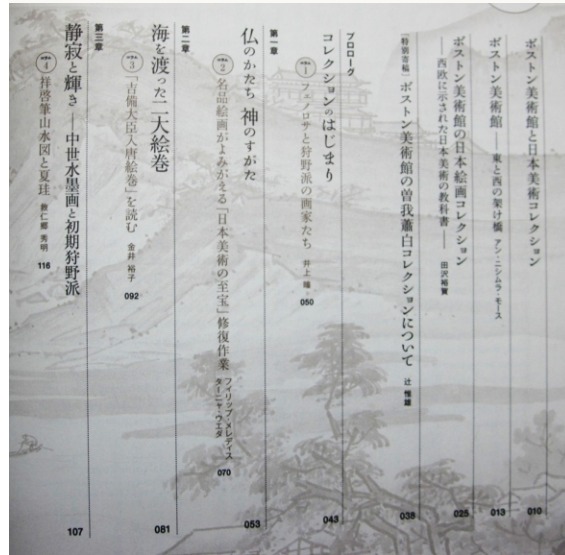 ボストン美術館と日本美術コレクション 010
ボストン美術館――東と西の架け橋 アン・ニシムラ・モース 013
ボストン美術館の日本絵画コレクション
――西欧に示された日本美術の教科書―― 田沢裕賀 025
[特別寄稿] ボストン美術館の曽我蕭白コレクションについて 辻 惟雄 038
プロローグ
コレクションのはじまり 043
コラム1 フェノロサと狩野派の画家たち 井上 瞳 050
第一章
仏のかたち 神のすがた 053
コラム2 名品絵画がよみがえる「日本美術の至宝」修復作業 フィリップ・メレディス
ターニャ・ウエダ 070
第二章
海を渡った二大絵巻 081
コラム3 「吉備大臣入唐絵巻」を読む 金井 裕子 092
第三章
静寂と輝き――中世水墨画と初期狩野派 107
コラム4 祥啓筆山水図と夏珪 救仁郷 秀明 116